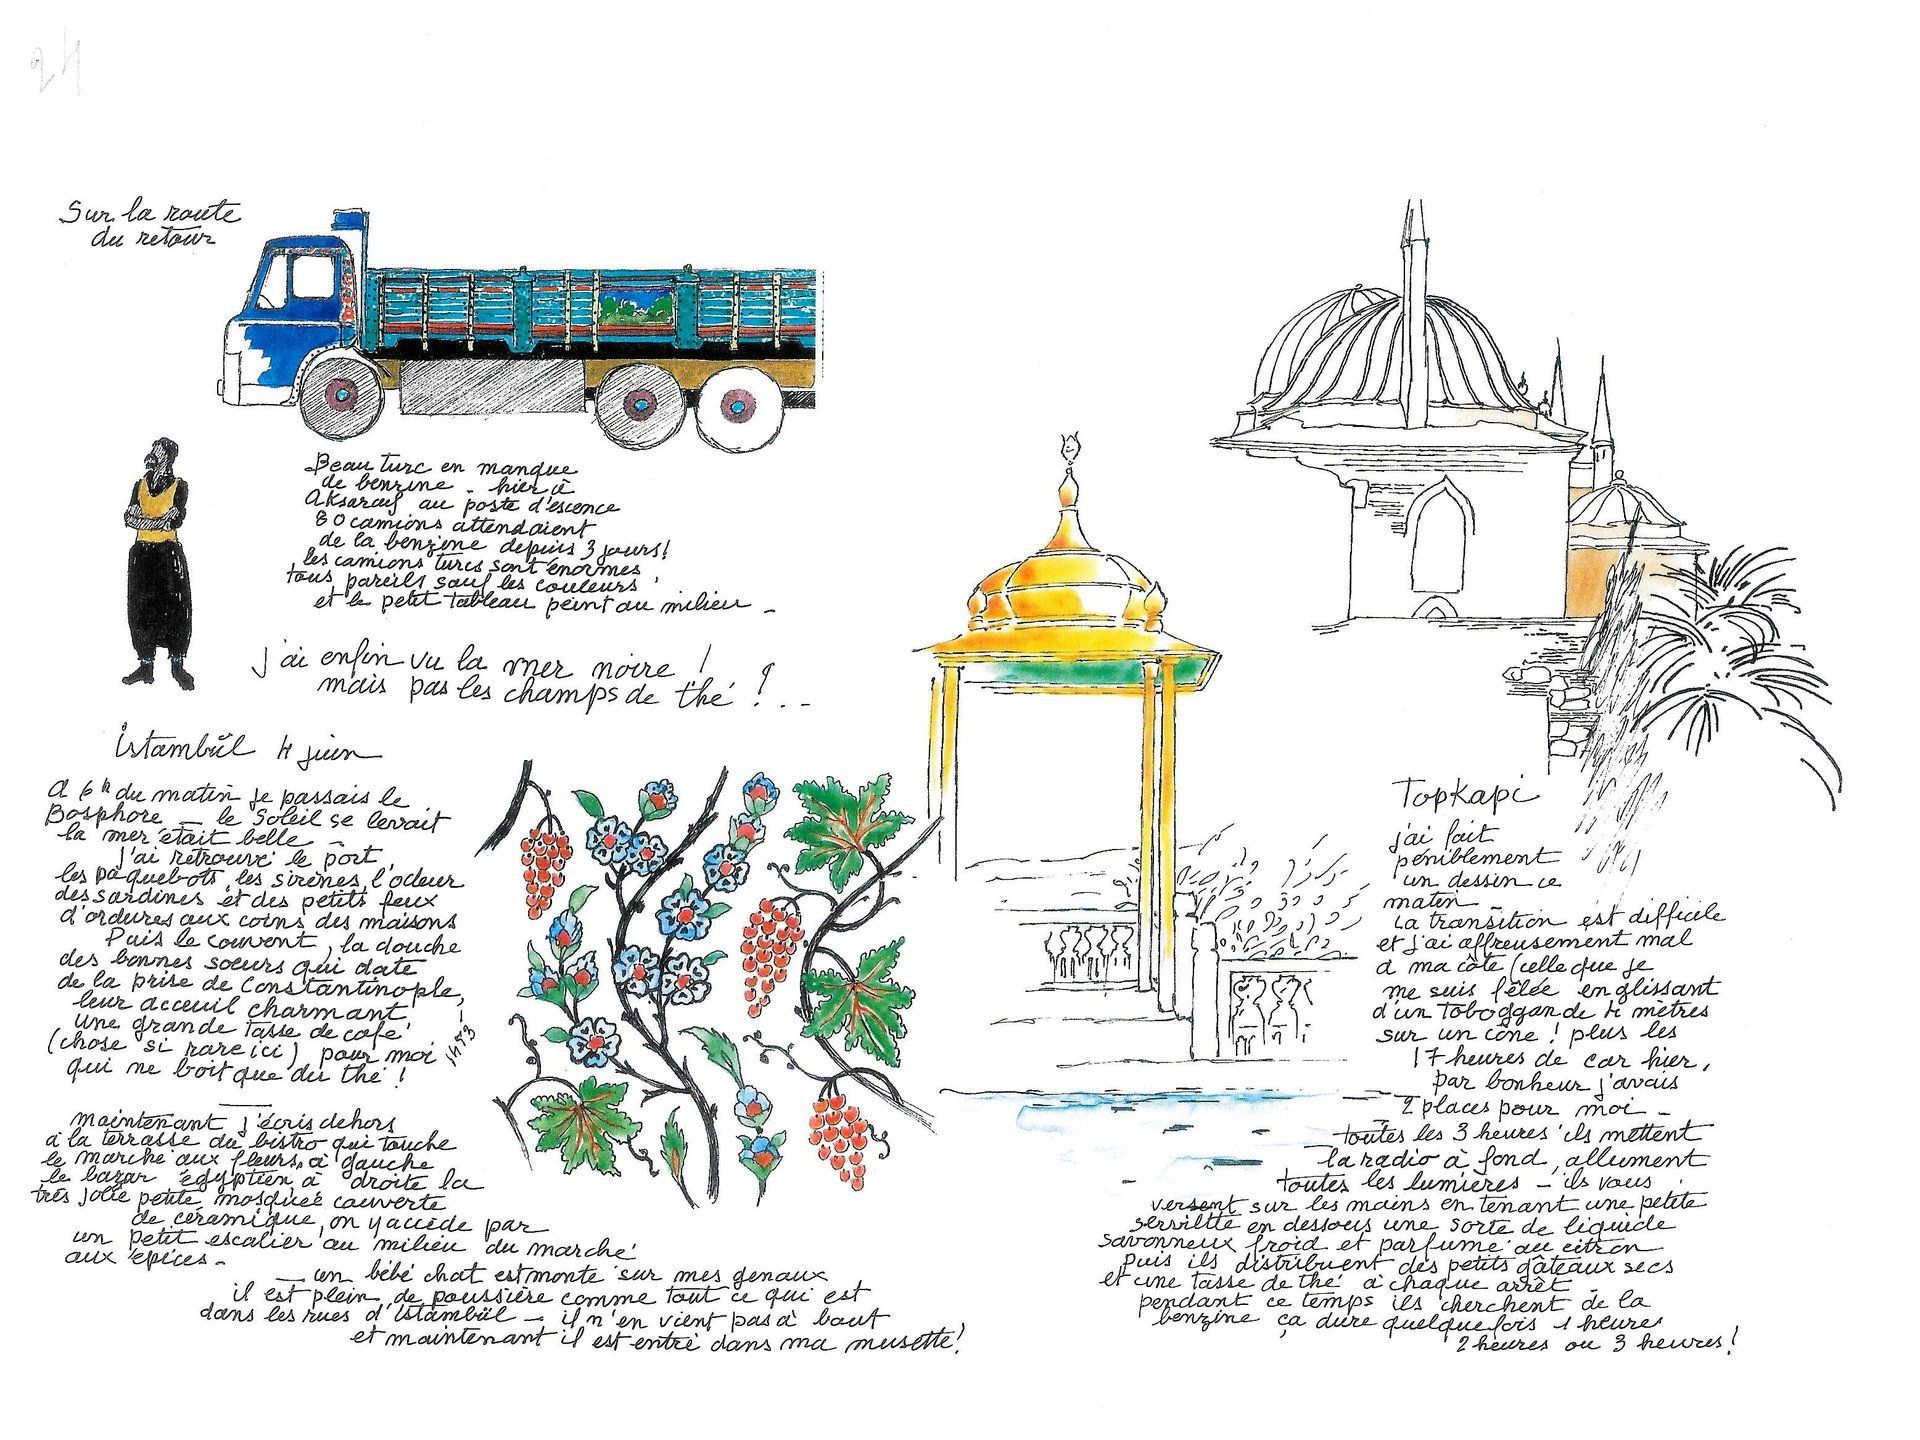 24
Sur la route
du retour
Beau turc en manque
de benzine - hier à
Aksaray au poste d'escence
80 camions attendaient
de la benzine depuis 3 jours!
les camions turcs sont énormes
tous pareils sauf les couleurs
et le petit tableau peint au milieu -
j'ai enfin vu la mer noire !
mais pas les champs de thé ! . .
istambül 4 juin
A 6h du matin je passais le
Bosphore - le Soleil se levait
la mer était belle -
j'ai retrouvé le port,
les paquebots, les sirènes, l'odeur
des sardines et des petits feux
d'ordures aux coins des maisons
Puis le couvent, la douche
des bonnes soeurs qui date
de la prise de Constantinople,
leur acceuil charmant
une grande tasse de café
(chose si rare ici) pour moi
qui ne boit que du thé !
1453 -
maintenant j'écris dehors
à la terrasse du bistro qui touche
le marché aux fleurs, à gauche
le bazar égyptien à droite la
très jolie petite mosquée couverte
de céramique, on y accède par
un petit escalier au milieu du marché
aux épices -
- un bébé chat est monté sur mes genoux
il est plein de poussière comme tout ce qui est
dans les rues d'istambül - il n'en vient pas à bout
et maintenant il est entré dans ma musette!
Topkapi
j'ai fait
péniblement
un dessin ce
matin -
La transition est difficile
et j'ai affreusement mal
à ma côte (celle que je
me suis fêlée en glissant
d'un toboggan de 4 mètres
sur un cône ! plus les
17 heures de car hier,
par bonheur j'avais
2 places pour moi -
toutes les 3 heures ils mettent
la radio à fond, allument
toutes les lumières - ils vous
versent sur les mains en tenant une petite
serviette en dessous une sorte de liquide
savonneux froid et parfumé au citron
Puis ils distribuent des petits gâteaux secs
et une tasse de thé à chaque arrêt -
pendant ce temps ils cherchent de la
benzine ça dure quelquefois 1 heure
2 heures ou 3 heures!